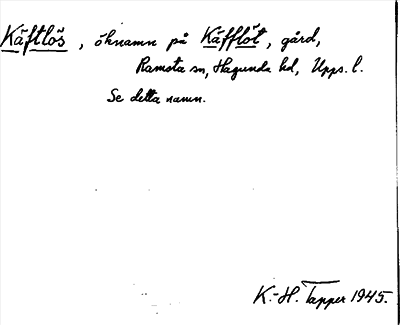 Käftlös, öknamn på Käfflöt, gård,
Ramsta sn, Hagunda hd, Upps. l.
Se detta namn.
K.-H. Tapper 1945.